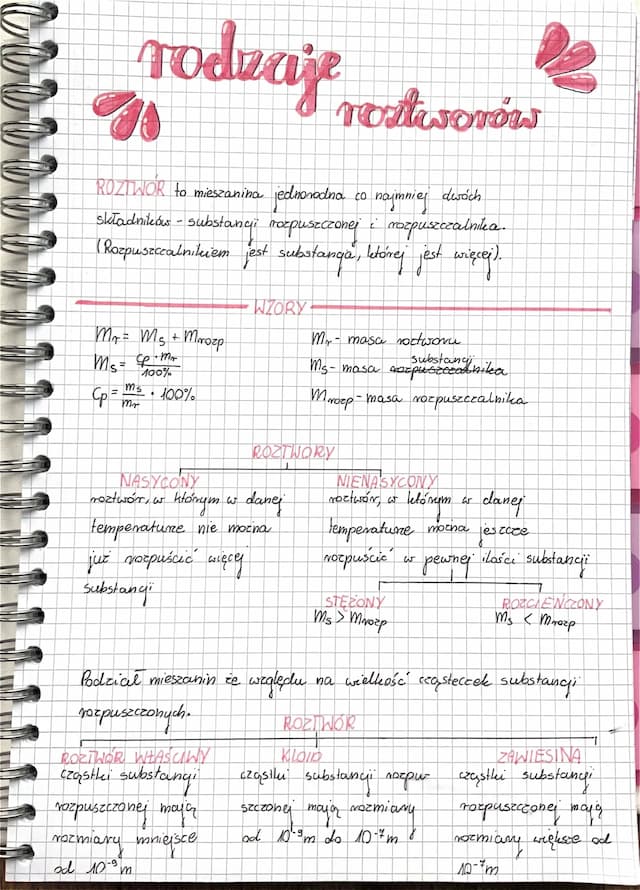 rodzaje
roztworów
ROZTWÓR to mieszanina jednorodna co najmniej dwóch
składników - substancji rozpuszczonej i rozpuszczalnika.
(Rozpuszczalnikiem jest substancja, której jest więcej).
WZORY
mr = ms + mrozp
ms = cp · mr / 100%
cp = ms / mr · 100%
mr - masa roztworu
ms - masa substancji
mrozp - masa rozpuszczalnika
ROZTWORY
NASYCONY
roztwór, w którym w danej
temperaturze nie można
już rozpuścić więcej
substancji
NIENASYCONY
roztwór, w którym w danej
temperaturze można jeszcze
rozpuścić w pewnej ilości substancji
STĘŻONY
ms > mrozp
ROZCIEŃCZONY
ms < mrozp
Podział mieszanin ze względu na wielkość cząsteczek substancji
rozpuszczonych.
ROZTWÓR
ROZTWÓR WŁAŚCIWY
cząstki substancji
rozpuszczonej mają
rozmiary mniejsze
od 10⁻⁹m
KLOID
cząstki substancji rozpu-
szczonej mają rozmiary
od 10⁻⁹m do 10⁻⁷m
ZAWIESINA
cząstki substancji
rozpuszczonej mają
rozmiary większe od
10⁻⁷m